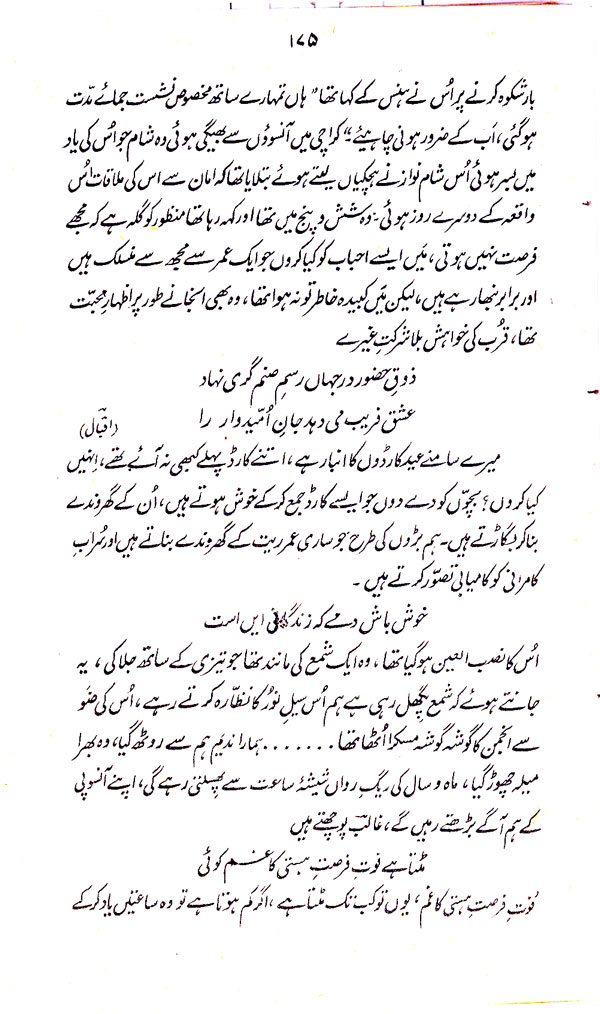 ۱۷۵
بار شکوہ کرنے پر اُس نے ہنس کے کہا تھا "ہاں تمہارے ساتھ مخصوص نشست جمائے مدّت
ہوگئی، اَب کے ضرور ہونی چاہیئے۔" کراچی میں آنسوؤں سے بھیگی ہوئی وہ شام جو اُس کی یاد
میں بسر ہوئی اُس شام نواز نے ہچکیاں لیتے ہوئے بتلایا تھا کہ امان سے اس کی ملاقات اُس
واقعہ کے دوسرے روز ہوئی۔ وہ شش و پنج میں تھا اور کہہ رہا تھا منظور کو گلہ ہے کہ مجھے
فرصت نہیں ہوتی، میں ایسے احباب کو کیا کروں جو ایک عمر سے مجھ سے منسلک ہیں
اور برابر نبھا رہے ہیں، لیکن میں کبیدہ خاطر تو نہ ہوا تھا، وہ بھی انجانے طور پر اظہارِ محبّت
تھا، قُرب کی خواہش بلا شرکتِ غیرے
ذوقِ حضور در جہاں رسمِ صنم گری نہاد
عشق فریب می دہد جانِ اُمّیدوار را (اقبالؔ)
میرے سامنے عید کارڈوں کا انبار ہے، اتنے کارڈ پہلے کبھی نہ آئے تھے، اِنہیں
کیا کروں؟ بچّوں کو دے دوں جو ایسے کارڈ جمع کرکے خوش ہوتے ہیں، اُن کے گھروندے
بنا کر بگاڑتے ہیں۔ ہم بڑوں کی طرح جو ساری عمر ریت کے گھروندے بناتے ہیں اور سُرابِ
کامرانی کو کامیابی تصوّر کرتے ہیں۔
خوش باش دمے کہ زندگانی ایں است
اُس کا نصب العین ہوگیا تھا، وہ ایک شمع کی مانند تھا جو تیزی کے ساتھ جلا کی، یہ
جانتے ہوئے کہ شمع پگھل رہی ہے ہم اُس سیلِ نُور کا نظّارہ کرتے رہے، اُس کی ضَو
سے انجمن کا گوشہ گوشہ مسکرا اُٹھا تھا ....... ہمارا ندیم ہم سے روٹھ گیا، وہ بھرا
میلہ چھوڑ گیا، ماہ و سال کی ریگِ رواں شیشۂ ساعت سے پھسلتی رہے گی، اپنے آنسو پی
کے ہم آگے بڑھتے رہیں گے، غالبؔ پوچھتے ہیں
مٹتا ہے فوتِ فرصتِ ہستی کا غم کوئی
فوتِ فرصتِ ہستی کا غم، یوں تو کب تک مٹتا ہے، اگر کم ہوتا ہے تو وہ ساعتیں یاد کرکے